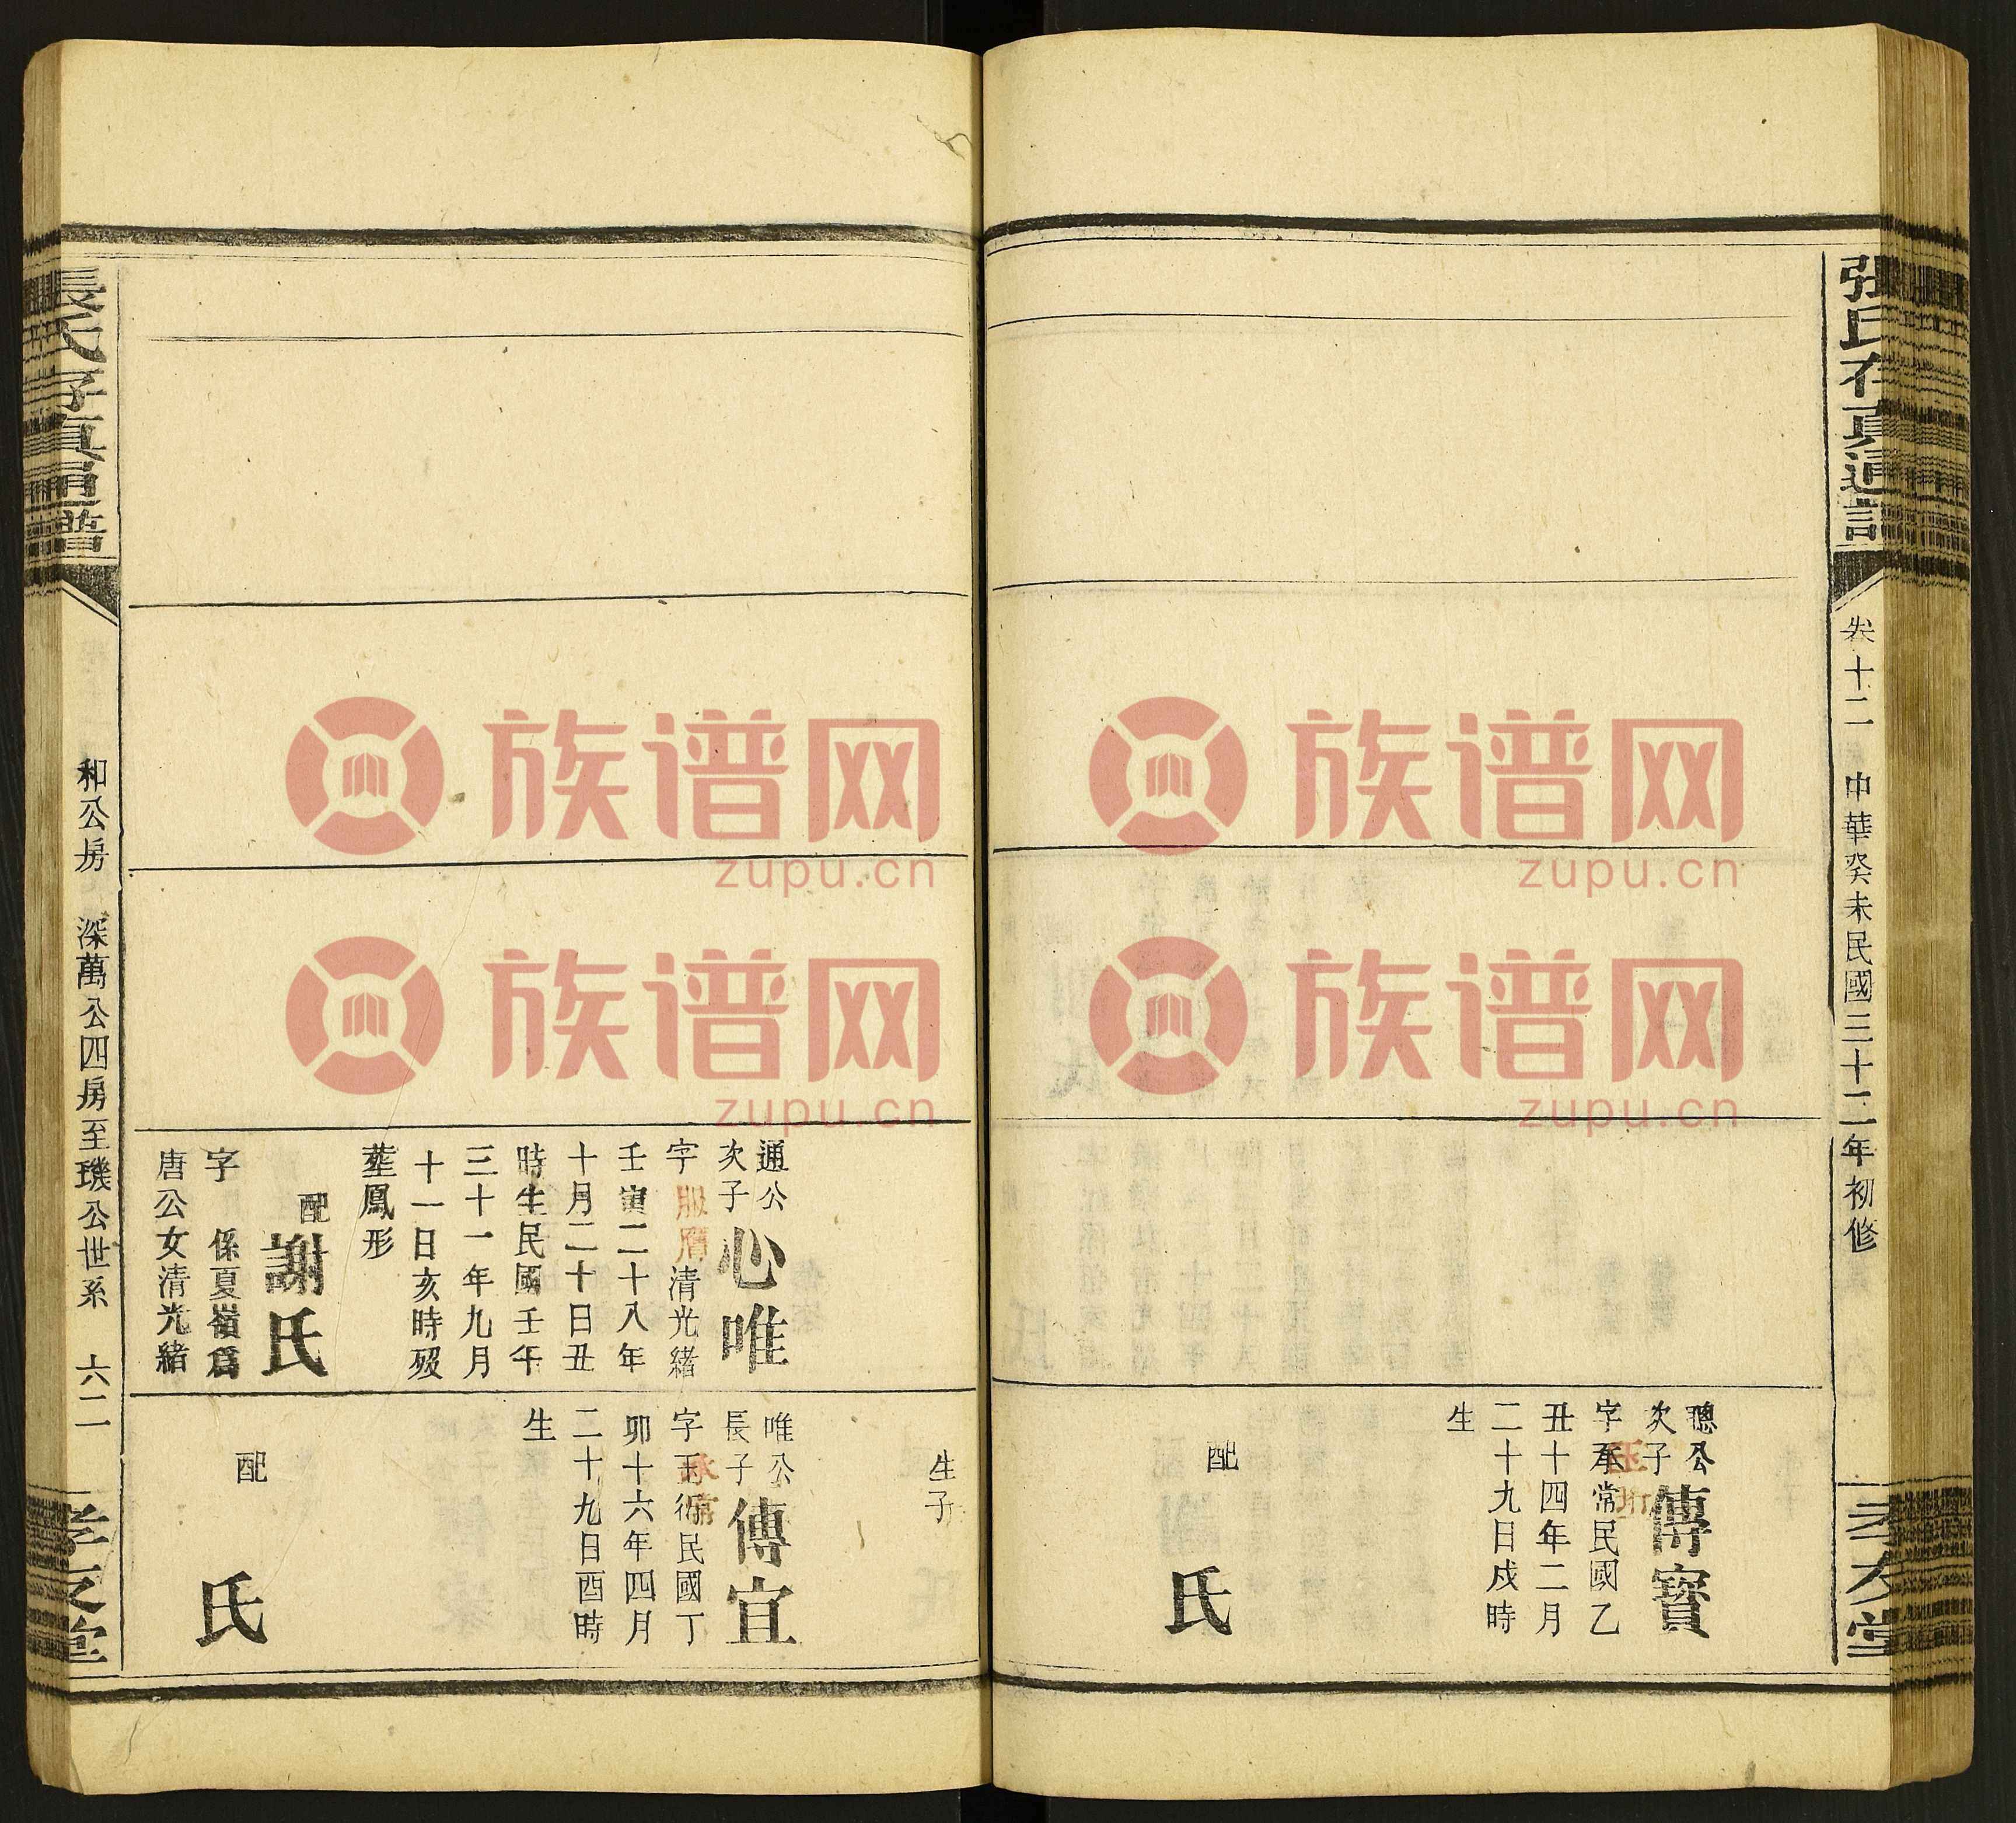 張氏存真通譜
卷十二
中華癸未民國三十二年初修
孝友堂
聰公
次子
傳寶
字承常民國乙
丑十四年二月
二十九日戌時
生
配
氏
生子
通公
次子
心唯
字服膺清光緒
壬寅二十八年
十月二十日丑
時生民國壬午
三十一年九月
十一日亥時歿
葬鳳形
配
謝氏
字 係夏嶺爲
唐公女清光緒
唯公
長子
傳宜
字玉衍民國丁
卯十六年四月
二十九日酉時
生
配
氏
張氏存真通譜
和公房
深萬公四房至璣公世系
六二
孝友堂
族谱网
zupu.cn
族谱网
zupu.cn
族谱网
zupu.cn
族谱网
zupu.cn